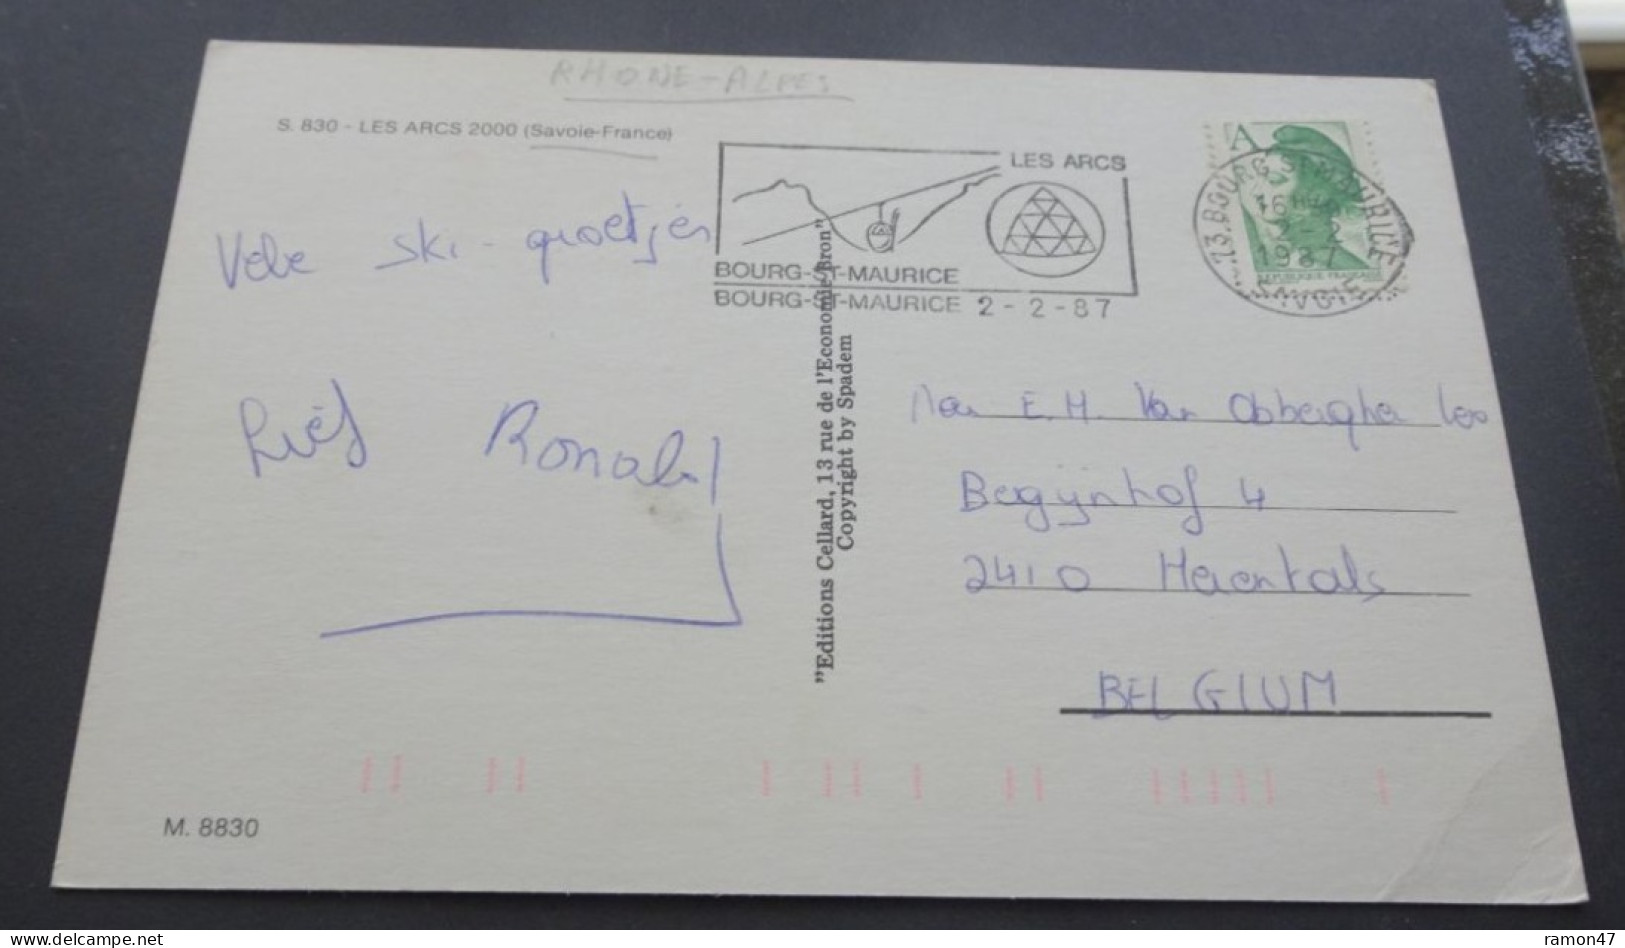 RHONE-ALPES
S. 830 - LES ARCS 2000 (Savoie-France)
LES ARCS
BOURG-ST-MAURICE
BOURG-ST-MAURICE 2-2-87
A
73.BOURG ST MAURICE
16H
2-2
1987
SAVOIE
REPUBLIQUE FRANÇAISE
Vele ski-groetjes
Liefs Ronald
"Editions Cellard, 13 rue de l'Economie, Bron"
Copyright by Spadem
E.H. Van Obberghen Leo
Begijnhof 4
2410 Herentals
BELGIUM
M. 8830
ramon47